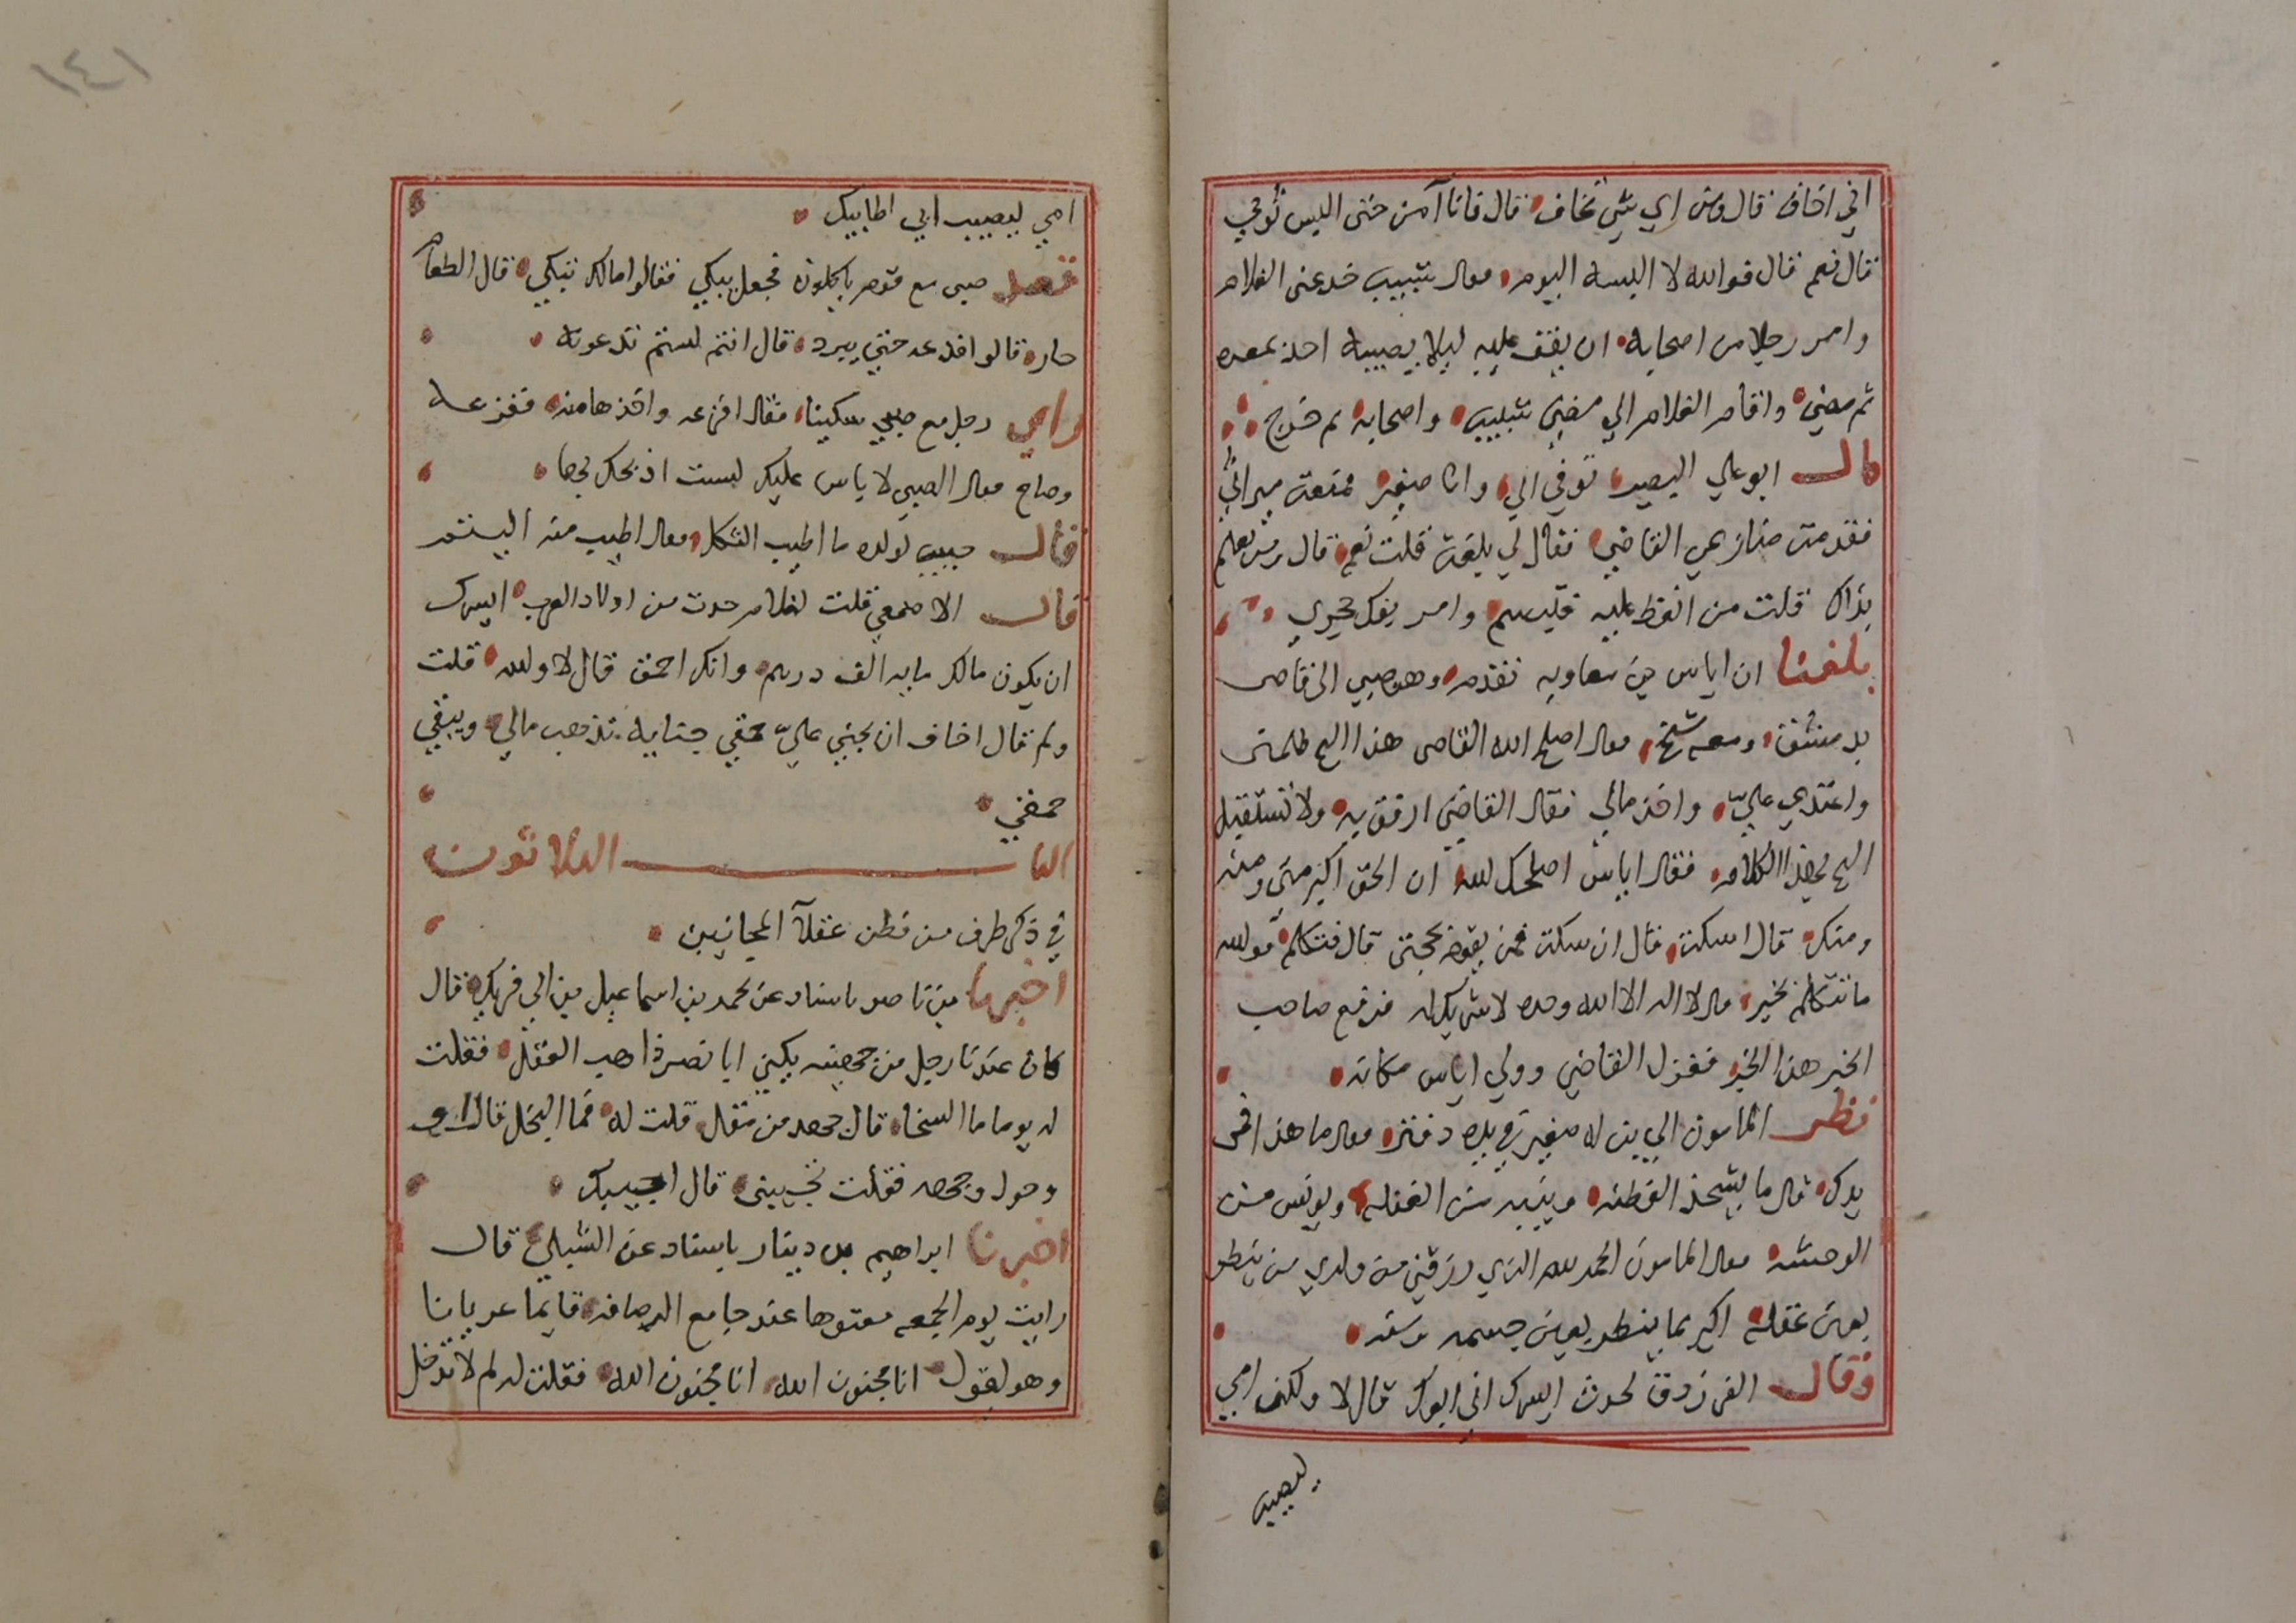 اني اخاف قال ومن اي شي تخاف قال فانا آمن حتى البس ثوبي
قال نعم قال فوالله لا البسه اليوم فقال شبيب خدعني الغلام
وامر رجلا من اصحابه ان يقف عليه ليلا يصيبه احد بمعره
ثم مضي واقام الغلام الي مضي شبيب واصحابه ثم خرج
قال ابو علي البصير توفي ابي وانا صغير فمنعت ميراثي
فقدمت منازعي القاضي فقال لي بلغت قلت نعم قال ومن يعلم
بذاك قلت من انعظ عليه فتبسم وامر بفك حجري
بلغنا ان اياس بن معاويه تقدم وهو صبي الى قاضي
بدمشق ومعه شيخ فقال اصلح الله القاضي هذا الشيخ ظلمني
واعتدي عليّ واخذ مالي فقال القاضي ارفق به ولا تستقبل
الشيخ بهذا الكلام فقال اياس اصلحك الله ان الحق اكبر مني ومنه
ومنك قال اسكت قال ان سكت فمن يقوم بحجتي قال فتكلم فوالله
ما تتكلم بخير فقال لا اله الا الله وحده لا شريك له فرفع صاحب
الخبر هذا الخبر فعزل القاضي وولي اياس مكانه
نظر المامون الي ابن له صغير في يده دفتر فقال ما هذا في
يدك فقال ما يشحذ الفطنه وينبه من الغفله ويونس من
الوحشه فقال المامون الحمد لله الذي رزقني من ولدي من ينظر
بعين عقله اكثر مما ينظر بعين جسمه وسنه
وقال الفرزدق لحدث ايسرك اني ابوك قال لا ولكن امي
ليصيب
١٤١
امي ليصيب ابي اطايبك
قعد صبي مع قوم ياكلون فجعل يبكي فقالوا مالك تبكي قال الطعام
حار قالوا فدعه حتي يبرد قال انتم لستم تدعونه
راي رجل مع صبي سكينا فقال افزعه واخذها منه ففزعه
وصاح فقال الصبي لا باس عليك لست اذبحك بها
فقال حبيب لولده ما اطيب الثكل فقال اطيب منه اليتم
قال الاصمعي قلت لغلام حدث من اولاد العرب ايسرك
ان يكون مالك مايه الف درهم وانك احمق قال لا والله قلت
ولم قال اخاف ان يجني عليّ حمقي جنايه تذهب مالي ويبقي
حمقي
الباب الثلاثون
في ذكر طرف من فطن عقلآ المجانين
اخبرنا بن ناصر باسناد عن محمد بن اسماعيل بن ابي فديك قال
كان عندنا رجل من جهينه يكني ابا نصر ذاهب العقل فقلت
له يوما ما السخا قال جهد من مقل قلت له فما البخل قال اف
وحول وجهه فقلت تجيبني قال اجبتك
اخبرنا ابراهيم بن دينار باسناد عن الشبلي قال
رايت يوم الجمعه معتوها عند جامع الرصافه قايما عريانا
وهو يقول انا مجنون الله انا مجنون الله فقلت له لم لا تدخل